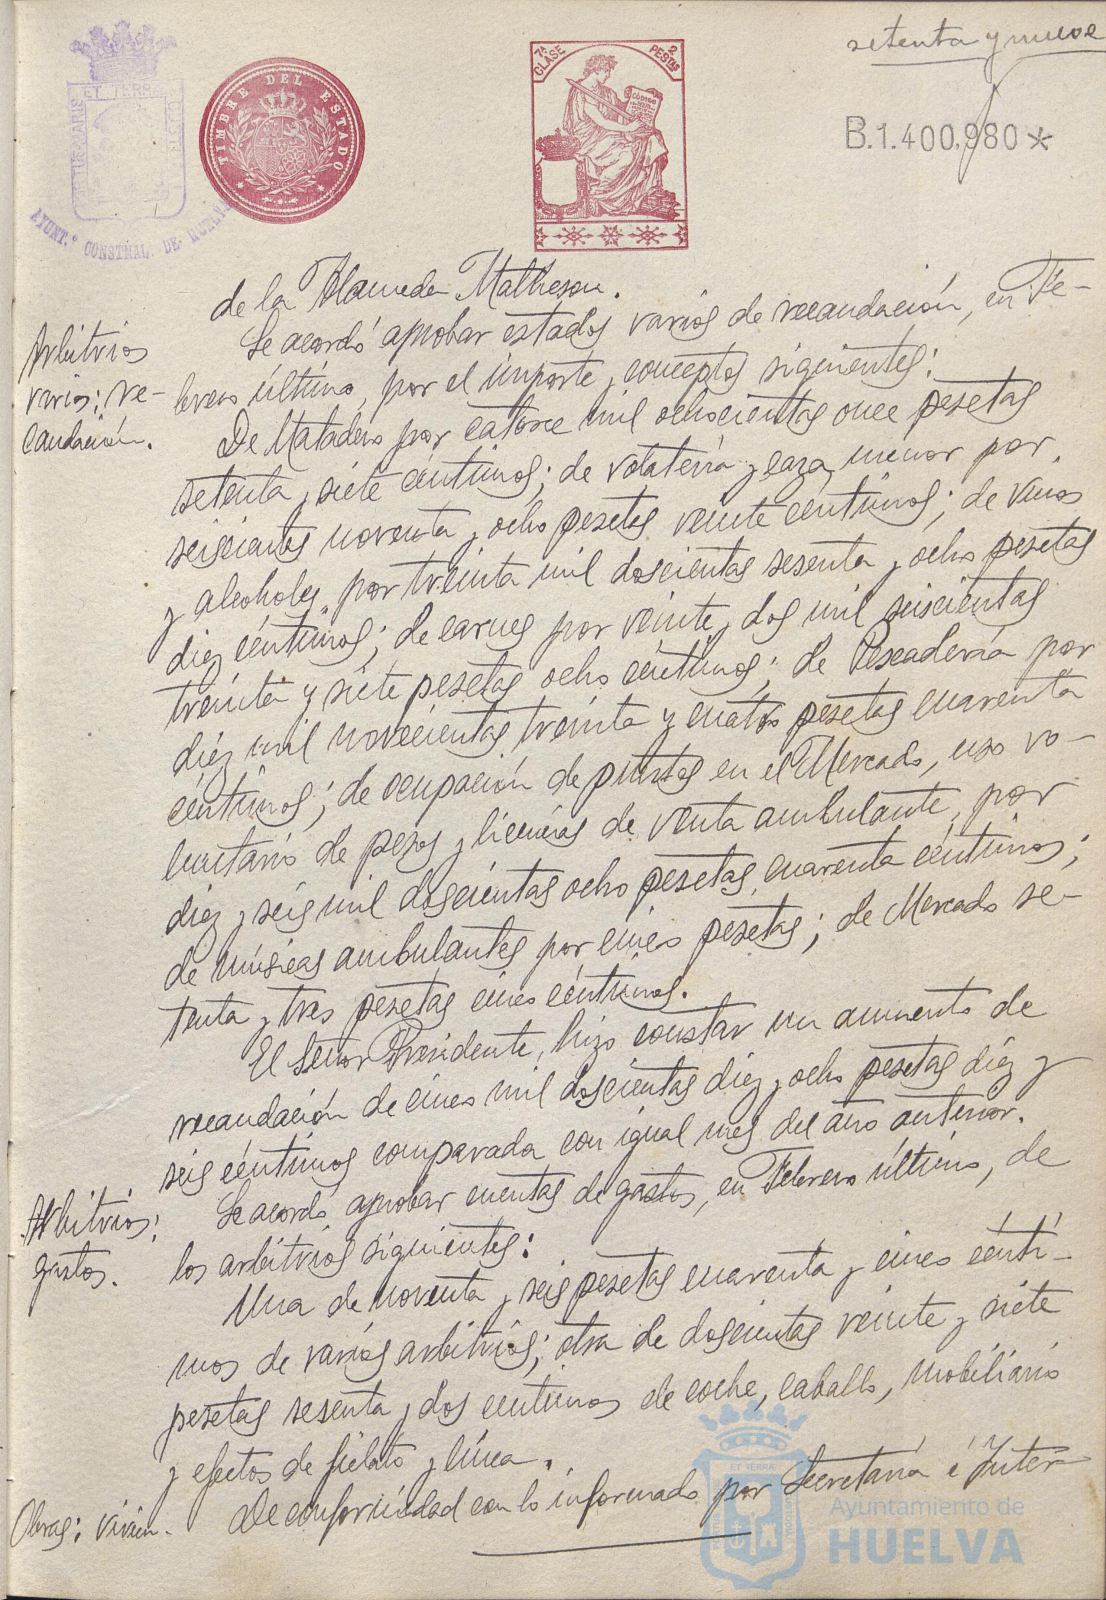 setenta y nueve
PORTUS MARIS ET TERRÆ CUSTODIA
AYUNT.º CONSTNAL. DE HUELVA
TIMBRE DEL ESTADO
7ª CLASE
2 PESTAS
CODIGO
B.1.400,980*
de la Alameda Matheson.
Arbitrios varios: recaudación.
Se acordó aprobar estados varios de recaudación, en Fe-
brero último, por el importe y conceptos siguientes:
De Matadero por catorce mil ochocientas once pesetas
setenta y siete céntimos; de volatería y caza menor por
seiscientas noventa y ocho pesetas veinte céntimos; de vinos
y alcoholes, por treinta mil doscientas sesenta y ocho pesetas
diez céntimos; de carnes por veinte y dos mil seiscientas
treinta y siete pesetas ocho céntimos; de Pescadería por
diez mil novecientas treinta y cuatro pesetas cuarenta
céntimos; de ocupación de puestos en el Mercado, uso vo-
luntario de pesos y licencias de venta ambulante, por
diez y seis mil doscientas ocho pesetas cuarenta céntimos;
de músicas ambulantes por cinco pesetas; de Mercado se-
tenta y tres pesetas cinco céntimos.
El Señor Presidente, hizo constar un aumento de
recaudación de cinco mil doscientas diez y ocho pesetas diez y
seis céntimos comparada con igual mes del año anterior.
Arbitrios: gastos.
Se acordó aprobar cuentas de gastos, en Febrero último, de
los arbitrios siguientes:
Una de noventa y seis pesetas cuarenta y cinco cénti-
mos de varios arbitrios; otra de doscientas veinte y siete
pesetas sesenta y dos céntimos de coche, caballo, mobiliario
y efectos de fielato y línea.
Obras:
De conformidad con lo informado por Secretaría é Inter-
Ayuntamiento de
HUELVA